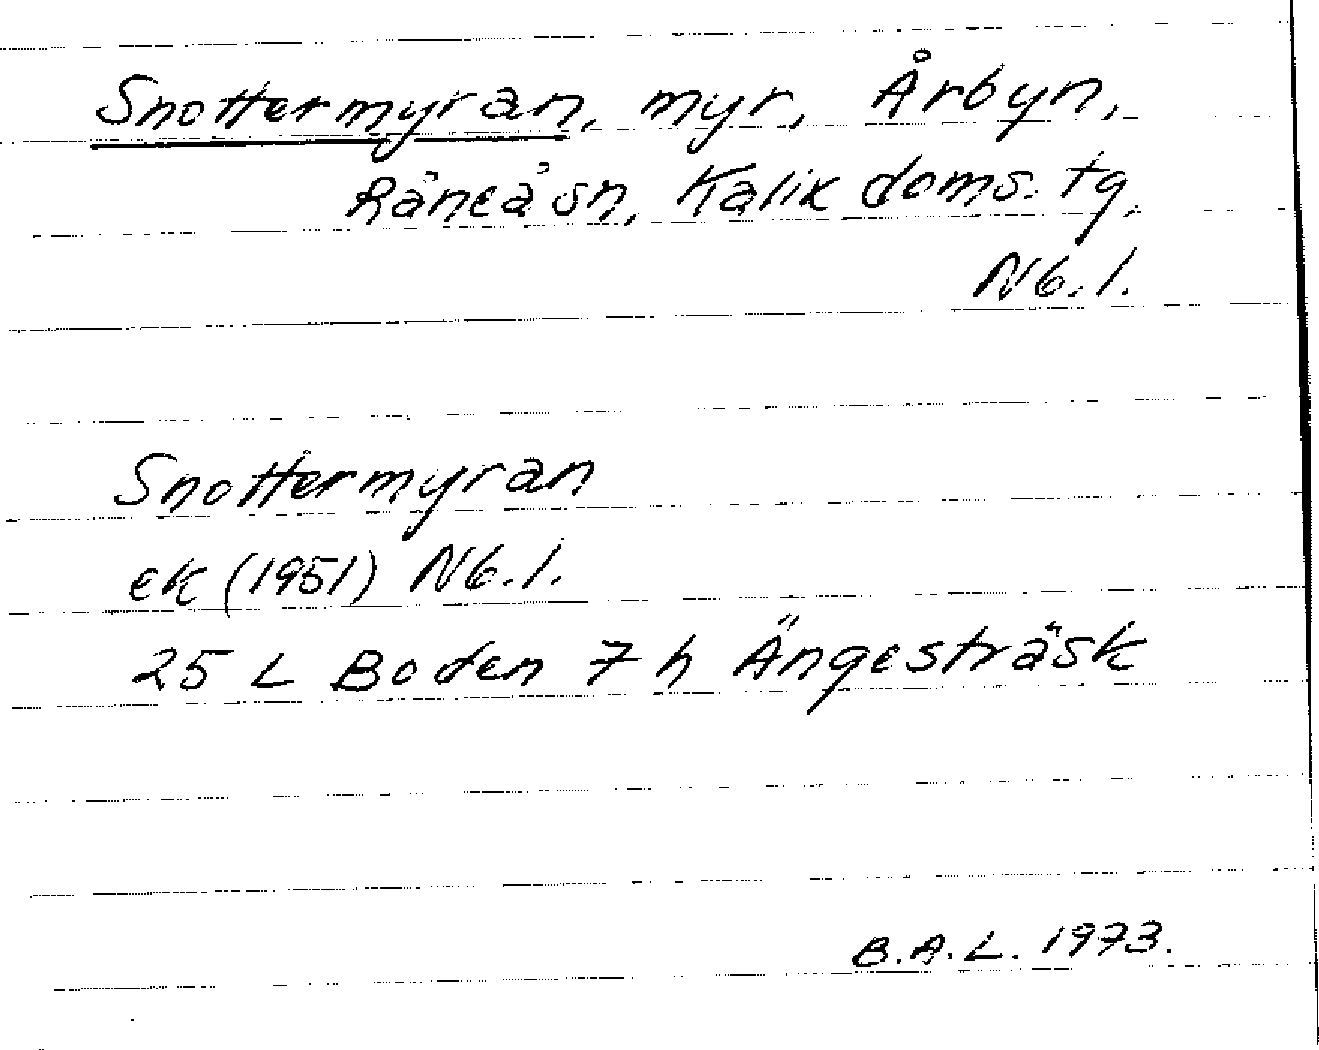 Snottermyran, myr, Årbyn,
Råneå sn, Kalix doms. tg.
Nb. l.
Snottermyran
ek (1951) Nb. l.
25 L Boden 7 h Ängesträsk
B.A.L. 1973.